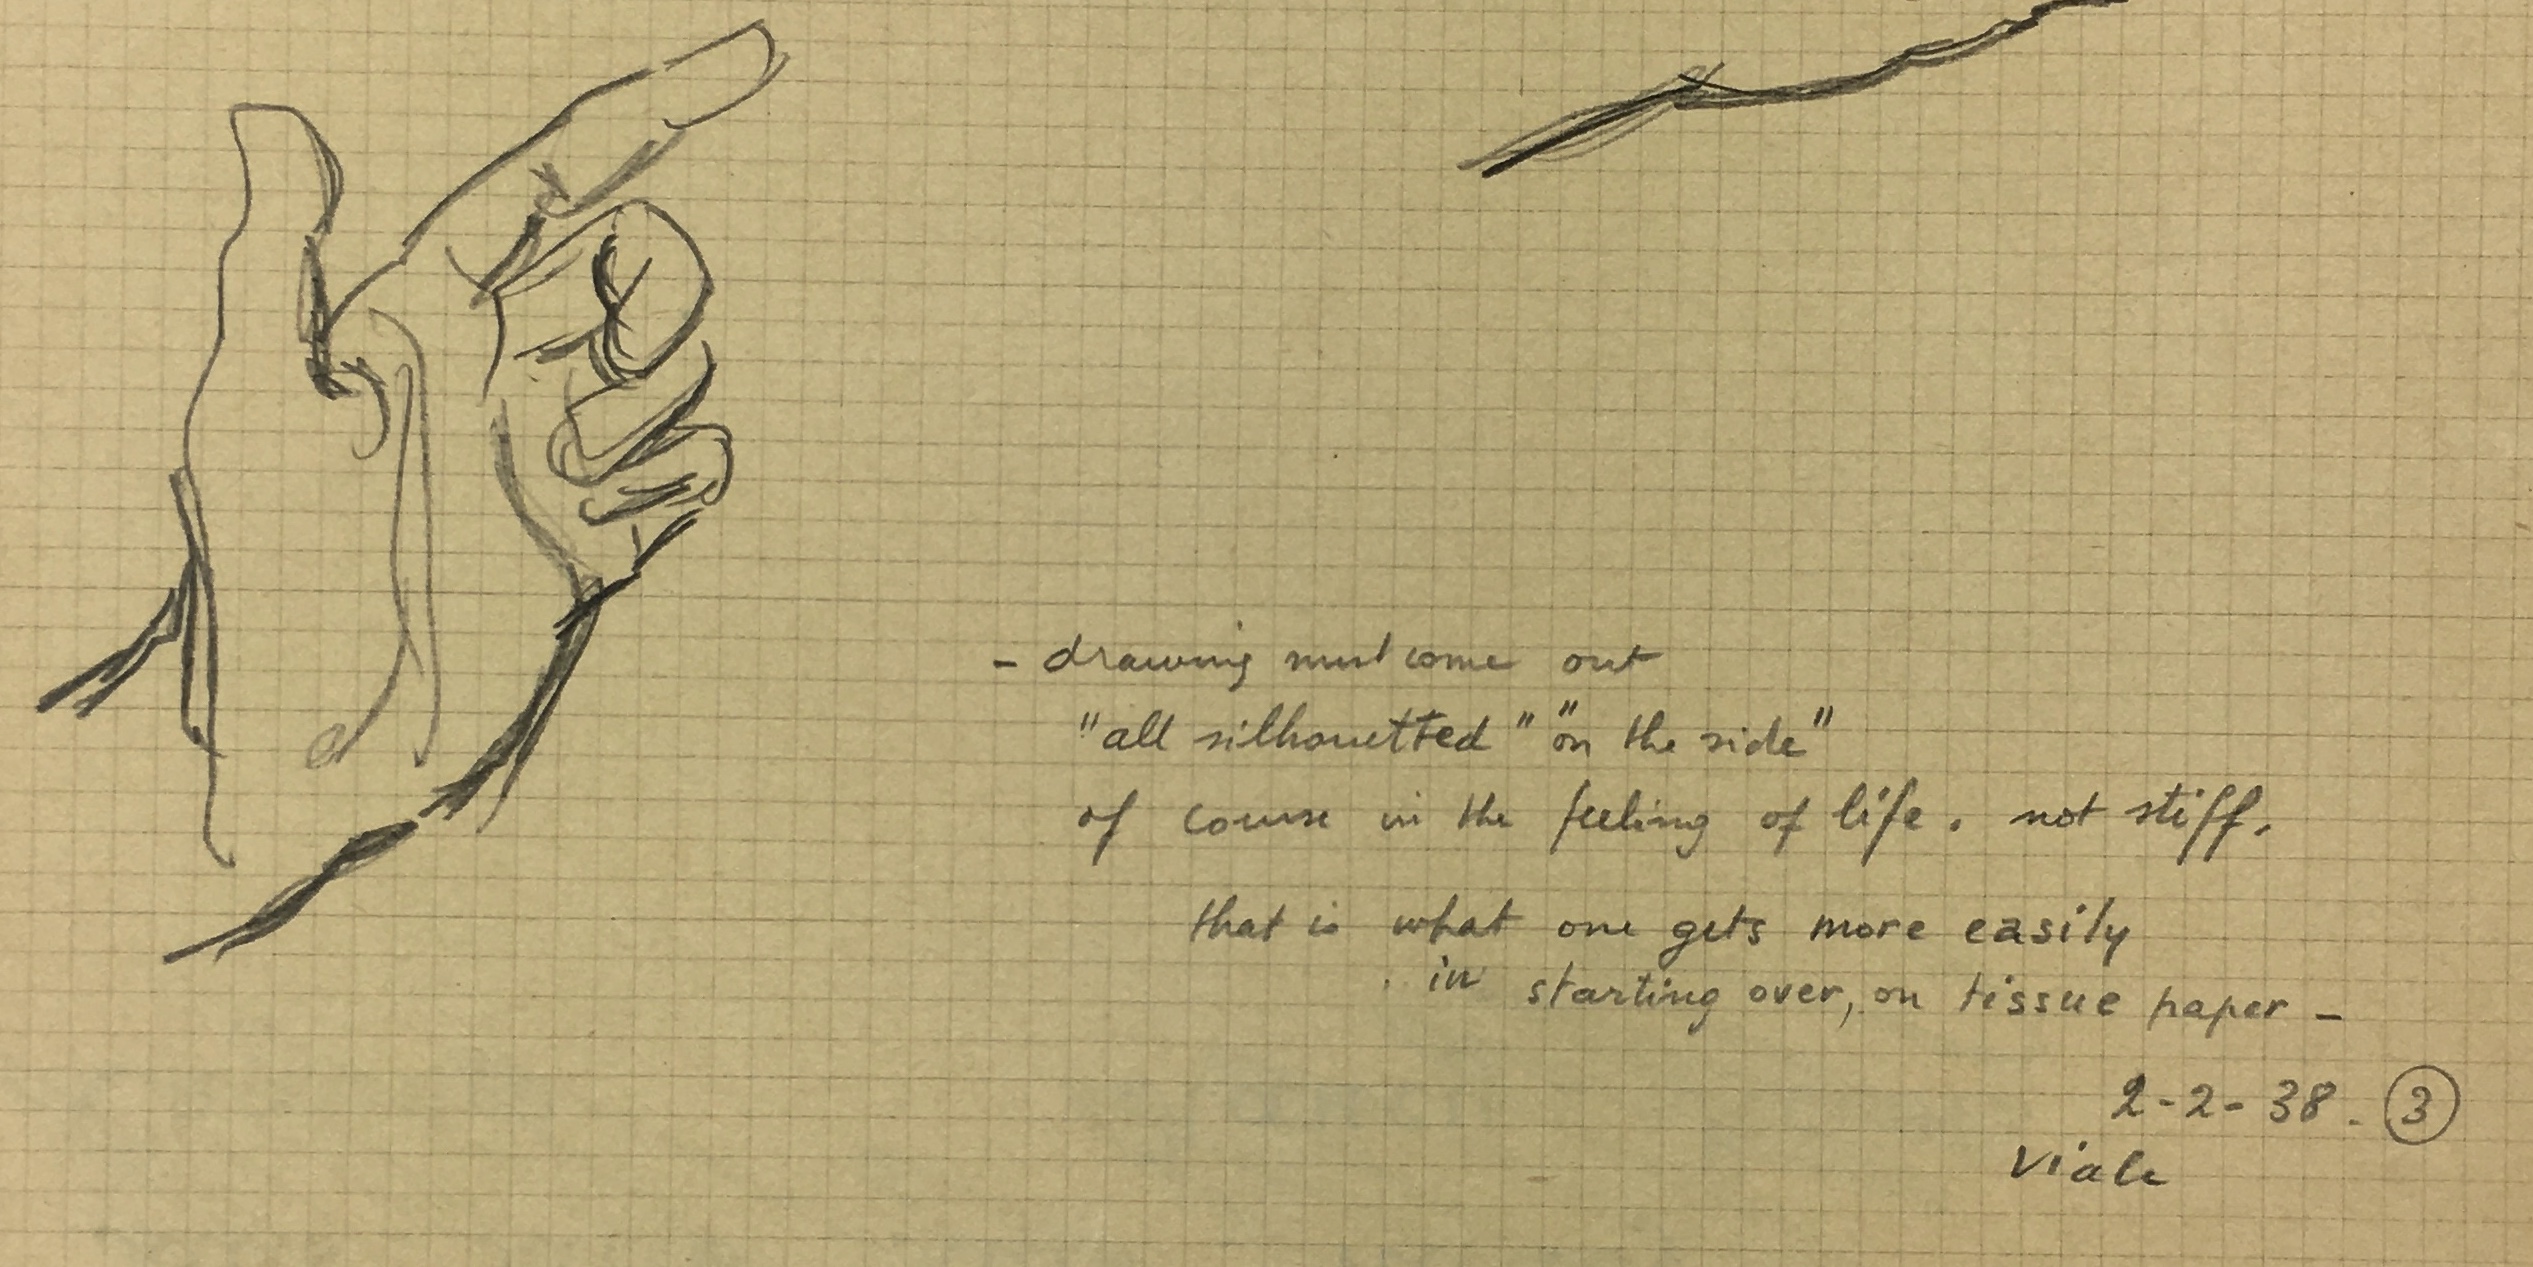 - drawing must come out
"all silhouetted" "on the side"
of course in the feeling of life. not stiff.
that is what one gets more easily
. in starting over, on tissue paper -
2-2-38. 3
Viale